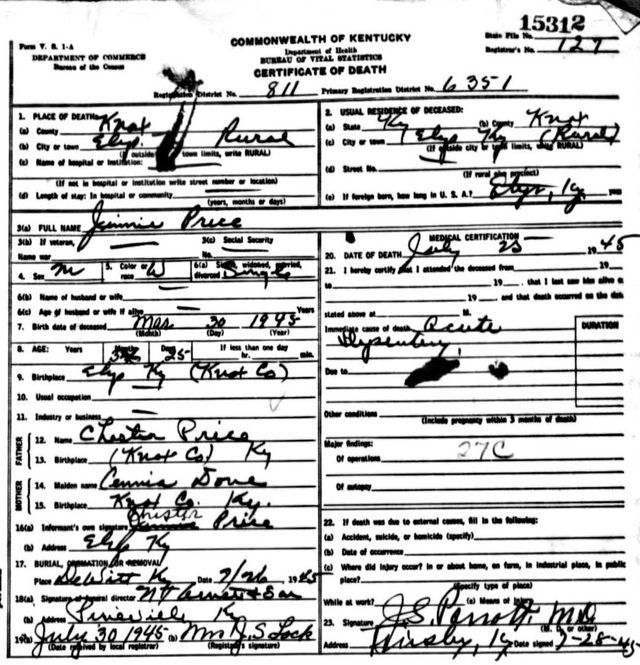 15312
Form V. S. 1-A
COMMONWEALTH OF KENTUCKY
State File No.
DEPARTMENT OF COMMERCE
Department of Health
Registrar's No. 127
Bureau of the Census
BUREAU OF VITAL STATISTICS
CERTIFICATE OF DEATH
Registration District No. 811 Primary Registration District No. 6351
1. PLACE OF DEATH:
(a) County Knox
(b) City or town Elys. Rural
(If outside town limits, write RURAL)
(c) Name of hospital or institution:
(If not in hospital or institution write street number or location)
(d) Length of stay: In hospital or community
(years, months or days)
2. USUAL RESIDENCE OF DECEASED:
(a) State Ky (b) County Knox
(c) City or town Elys Ky (Rural)
(If outside city or town limits, write RURAL)
(d) Street No.
(If rural give precinct)
(e) If foreign born, how long in U. S. A.? Elys, Ky,
3(a) FULL NAME Jimmie Price
3(b) If veteran, 3(c) Social Security
Name war No.
4. Sex M 5. Color or race W 6(a) Single, widowed, married, divorced Single
6(b) Name of husband or wife
6(c) Age of husband or wife if alive Years
7. Birth date of deceased Mar 30 1945
(Month) (Day) (Year)
8. AGE: Years Months 3 Days 25 If less than one day
hr. min.
9. Birthplace Elys Ky (Knox Co)
10. Usual occupation
11. Industry or business
FATHER
12. Name Chester Price
13. Birthplace (Knox Co) Ky
MOTHER
14. Maiden name
15. Birthplace Knox Co. Ky.
16(a) Informant's own signature Chester Price
(b) Address Elys Ky
17. BURIAL, CREMATION OR REMOVAL
Place DeWitt Ky Date 7/26 1945
18(a) Signature of funeral director
Pineville Ky
19(b) July 30 1945 Mrs J. S Lock
(Date received by local registrar) (Registrar's signature)
MEDICAL CERTIFICATION
20. DATE OF DEATH July 25 1945
21. I hereby certify that I attended the deceased from 19
to 19 that I last saw him alive o
19 and that death occurred on the dat
stated above at M.
Immediate cause of death Acute
Dysentery
DURATION
Due to
Other conditions
(Include pregnancy within 3 months of death)
Major findings:
Of operations 27C
Of autopsy
22. If death was due to external causes, fill in the following:
(a) Accident, suicide, or homicide (specify)
(b) Date of occurrence
(c) Where did injury occur? in or about home, on farm, in industrial place, in public
place?
(Specify type of place)
While at work? (e) Means of Injury
23. Signature J. S. Parrott M D
(M. D. or other)
Address Ky Date signed 7-28-45